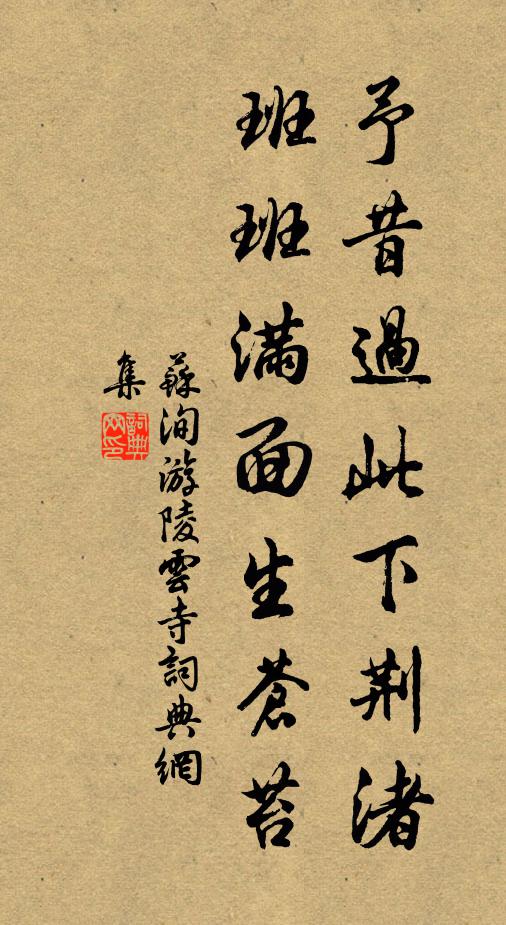 予昔過此下荆渚
班班滿面生蒼苔
蘇洵游陵雲寺詞典網
集
詞典
網印